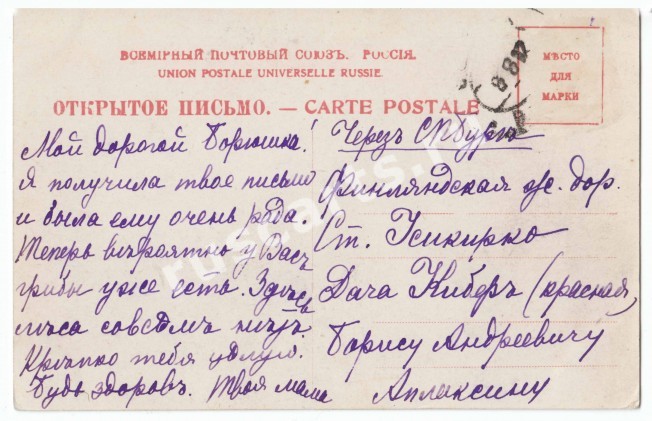 ВСЕМІРНЫЙ ПОЧТОВЫЙ СОЮЗЪ. РОССІЯ.
UNION POSTALE UNIVERSELLE RUSSIE.
ОТКРЫТОЕ ПИСЬМО. — CARTE POSTALE
МѢСТО
ДЛЯ
МАРКИ
Мой дорогой Борюшка!
Я получила твое письмо
и была ему очень рада.
Теперь вѣроятно у Васъ
грибы уже есть. Здѣсь
лѣса совсѣмъ нѣтъ.
Крѣпко тебя цѣлую.
Будь здоровъ. Твоя мама
Черезъ СПбургъ
Финляндская ж. дор.
Ст. Усикирко
Дача Киберъ (красная)
Борису Андреевичу
Апляксину